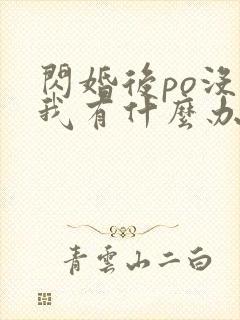 閃婚後po沒
我有什麼办
青雲山二白